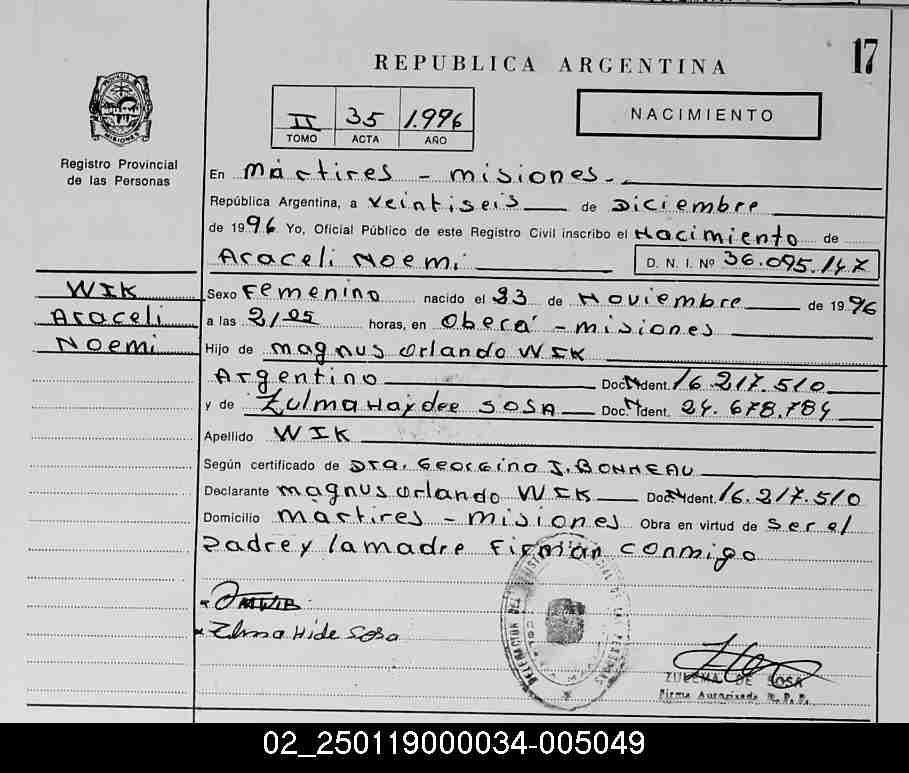 17
REPUBLICA ARGENTINA
II 35 1.996
TOMO ACTA AÑO
NACIMIENTO
PROVINCIA DE MISIONES
Registro Provincial
de las Personas
En Mártires - Misiones.-
República Argentina, a veintiseis de Diciembre
de 1996 Yo, Oficial Público de este Registro Civil inscribo el Nacimiento de
Araceli Noemi D. N. I. Nº 36.095.147
WIK
Araceli
Noemi
Sexo Femenino nacido el 23 de Noviembre de 1996
a las 21,05 horas, en Oberá - Misiones
Hijo de Magnus Orlando WIK
Argentino Doc. Ident. 16.217.510
y de Zulma Haydee SOSA Doc. Ident. 24.678.784
Apellido WIK
Según certificado de Dra. Georgina J. BONNEAU
Declarante Magnus Orlando WIK Doc. Ident. 16.217.510
Domicilio Martires - Misiones Obra en virtud de ser el
Padre y la madre Firman conmigo
Zlma Hide Sosa
ZULEMA DE SOSA
Firma Autorizada R. P. P.
02_250119000034-005049